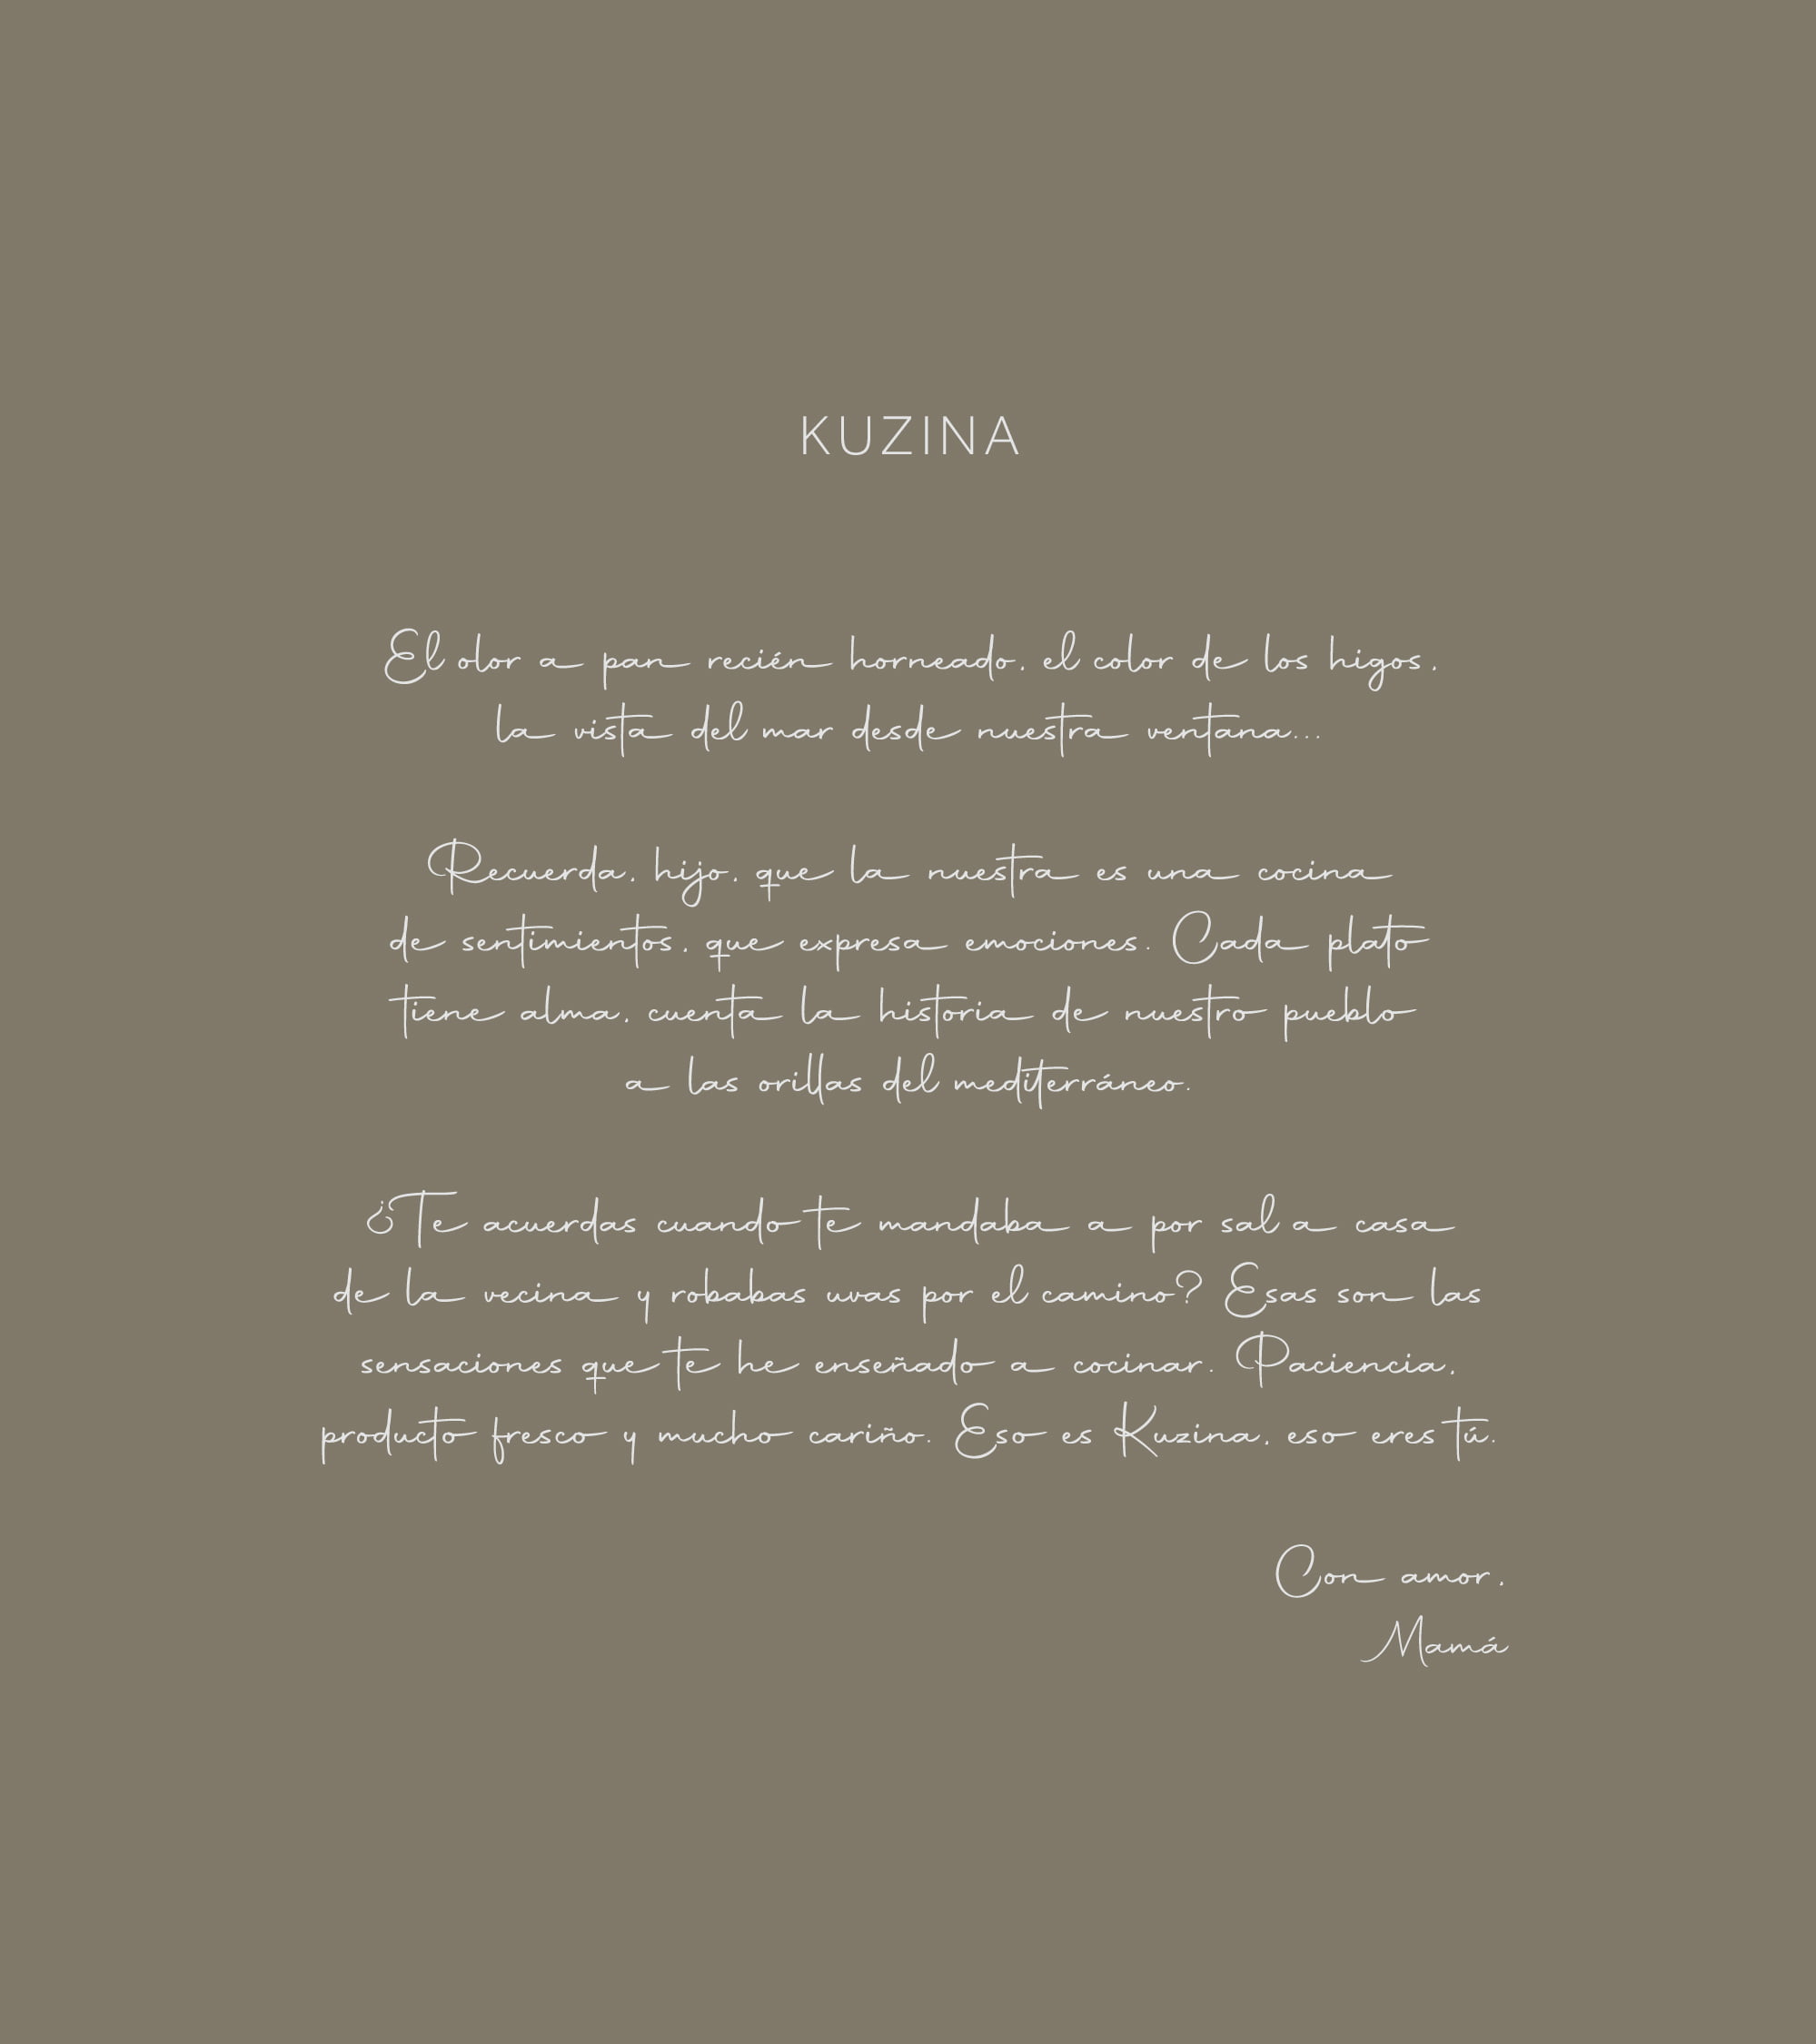 KUZINA
El olor a pan recién horneado, el color de los higos,
la vista del mar desde nuestra ventana...
Recuerda, hijo, que la nuestra es una cocina
de sentimientos, que expresa emociones. Cada plato
tiene alma, cuenta la historia de nuestro pueblo
a las orillas del mediterráneo.
¿Te acuerdas cuando te mandaba a por sal a casa
de la vecina y robabas uvas por el camino? Esas son las
sensaciones que te he enseñado a cocinar. Paciencia,
producto fresco y mucho cariño. Eso es Kuzina, eso eres tú.
Con amor,
Mamá